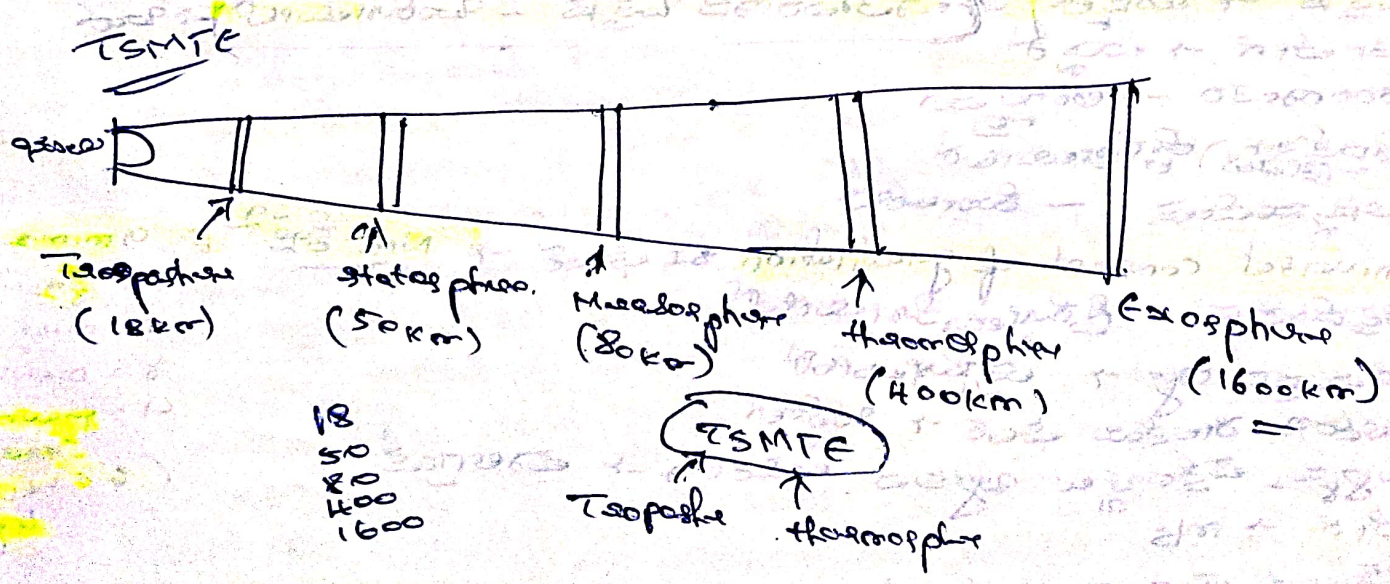 TSMTE
Troposphere
(18km)
Statosphree.
(50km)
Meadosphere
(80km)
thermosphere
(400km)
Exosphere
(1600km)
18
50
80
400
1600
TSMTE
Tropashe
thermosphre